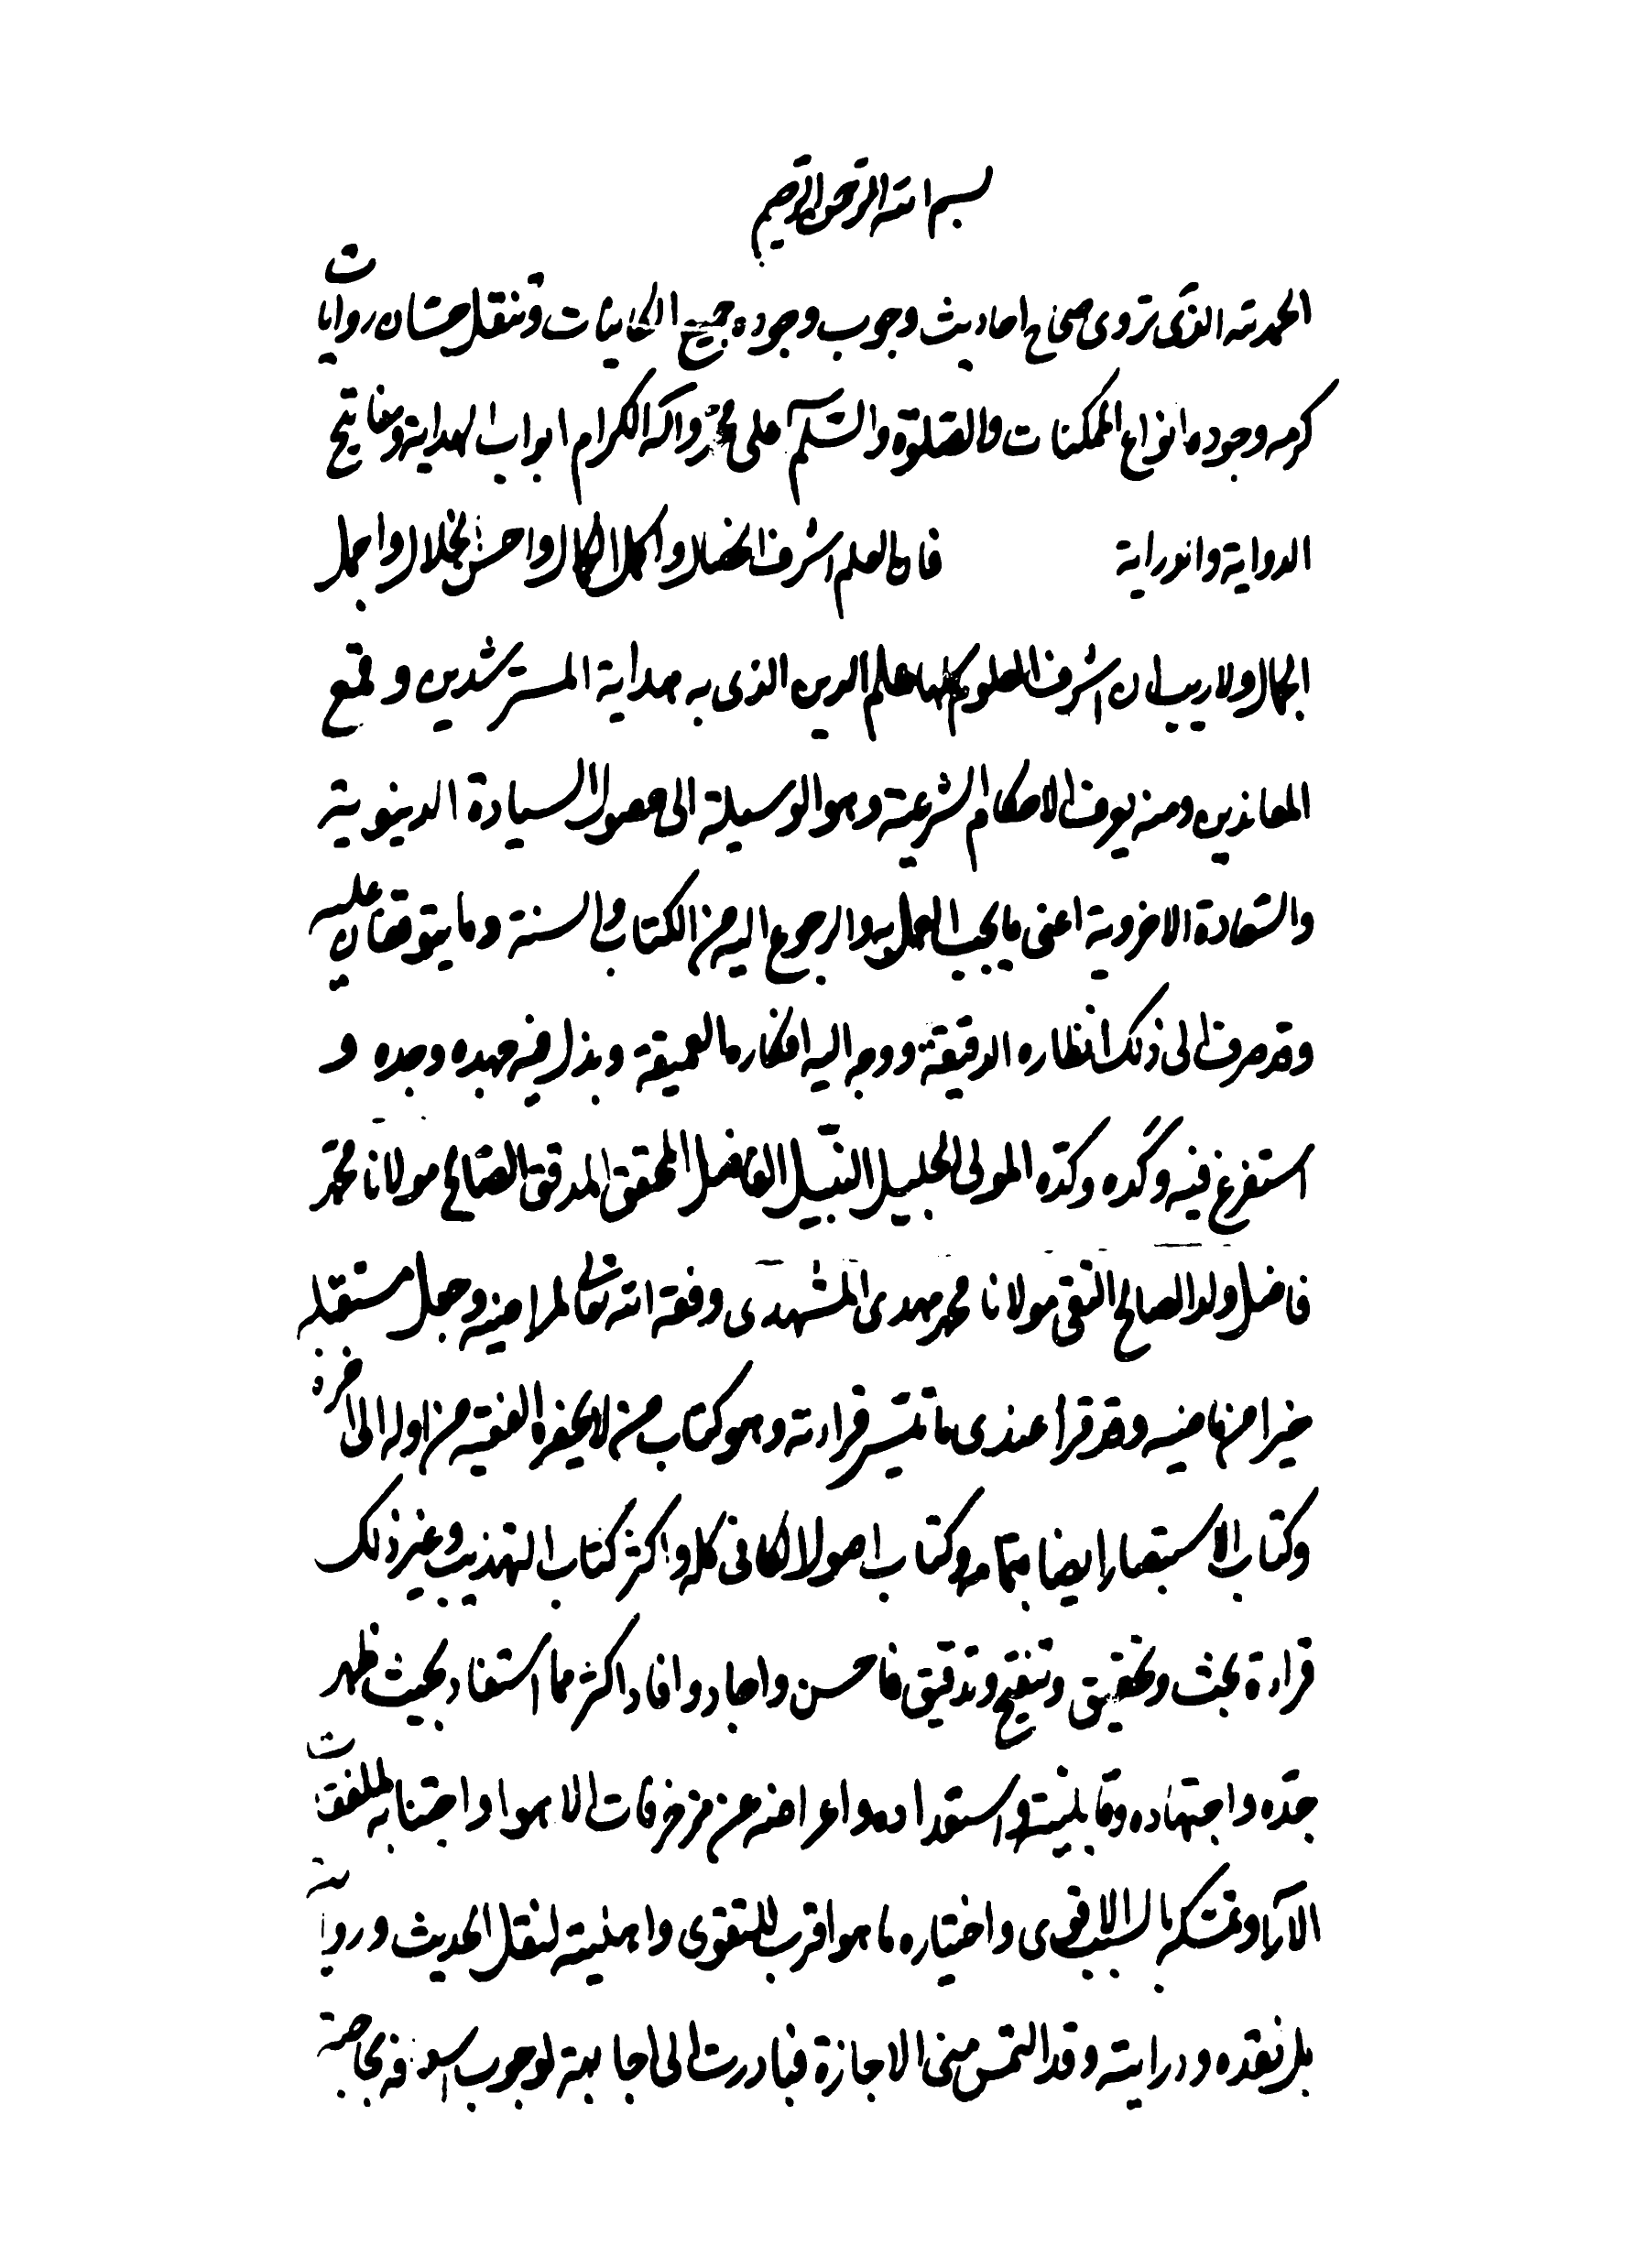 بسم الله الرحمن الرحيم
الحمد لله الذى تروى صحاح احاديث وجوب وجوده جميع الكاينات وتنقل حسان روايات
كرمه وجوده انواع الممكنات والصلوة والسّلم على محمد وآله الكرام ابواب الهداية ومفاتيح
الرواية والدراية فان العلم اشرف الخصال واكمل الكمال واحسن الخلال واجمل
الجمال ولا ريب ان اشرف العلوم كلها علم الدين الذى به هداية المسترشدين وقمع
المعاندين ومنه يعرف الاحكام الشرعية وهو الوسيلة الى حصول السيادة الدينوية
والسّعادة الاخروية اعنى ما يجب العمل به والرجوع اليه من الكتاب والسنة وما يتوقفان عليه
وقد صرف الى ذلك انظاره الدقيقة ووجه اليه افكاره العميقة وبذل فيه جهده وجده و
استفرغ فيه وكده وكدّه المولى الجليل النبيل الفاضل المحقق المدقق الصّالح مولانا محمّد
فاضل ولد الصالح التقى مولانا محمد مهدى المشهدى وفقه الله تعالى لمراضيه وجعل مستقبله
خيرا من ماضيه وقد قرأ عندى ما تيسّر قراءته وهو كتاب من لا يحضره الفقيه من اوله الى اخره
وكتاب الاستبصار ايضا بتمامه وكتاب اصول الكافى كله واكثر كتاب التهذيب وغير ذلك
قراءة بحث وتحقيق وتنقيح وتدقيق فاحسن واجاد وافاد اكثر مما استفاد بحيث ظهر
جدّه واجتهاده وقابليته واستعداده واعراضه عن مزخرفات الاهوا واجتنابه لملفقات
الآراء وتمسّكه بالسبب الاقوى واختياره ما هو اقرب للتقوى واهليته لنقل الحديث وروايته
بل نقده ودرايته وقد التمس منى الاجازة فبادرت الى اجابته لوجوب اسعافه بحاجته